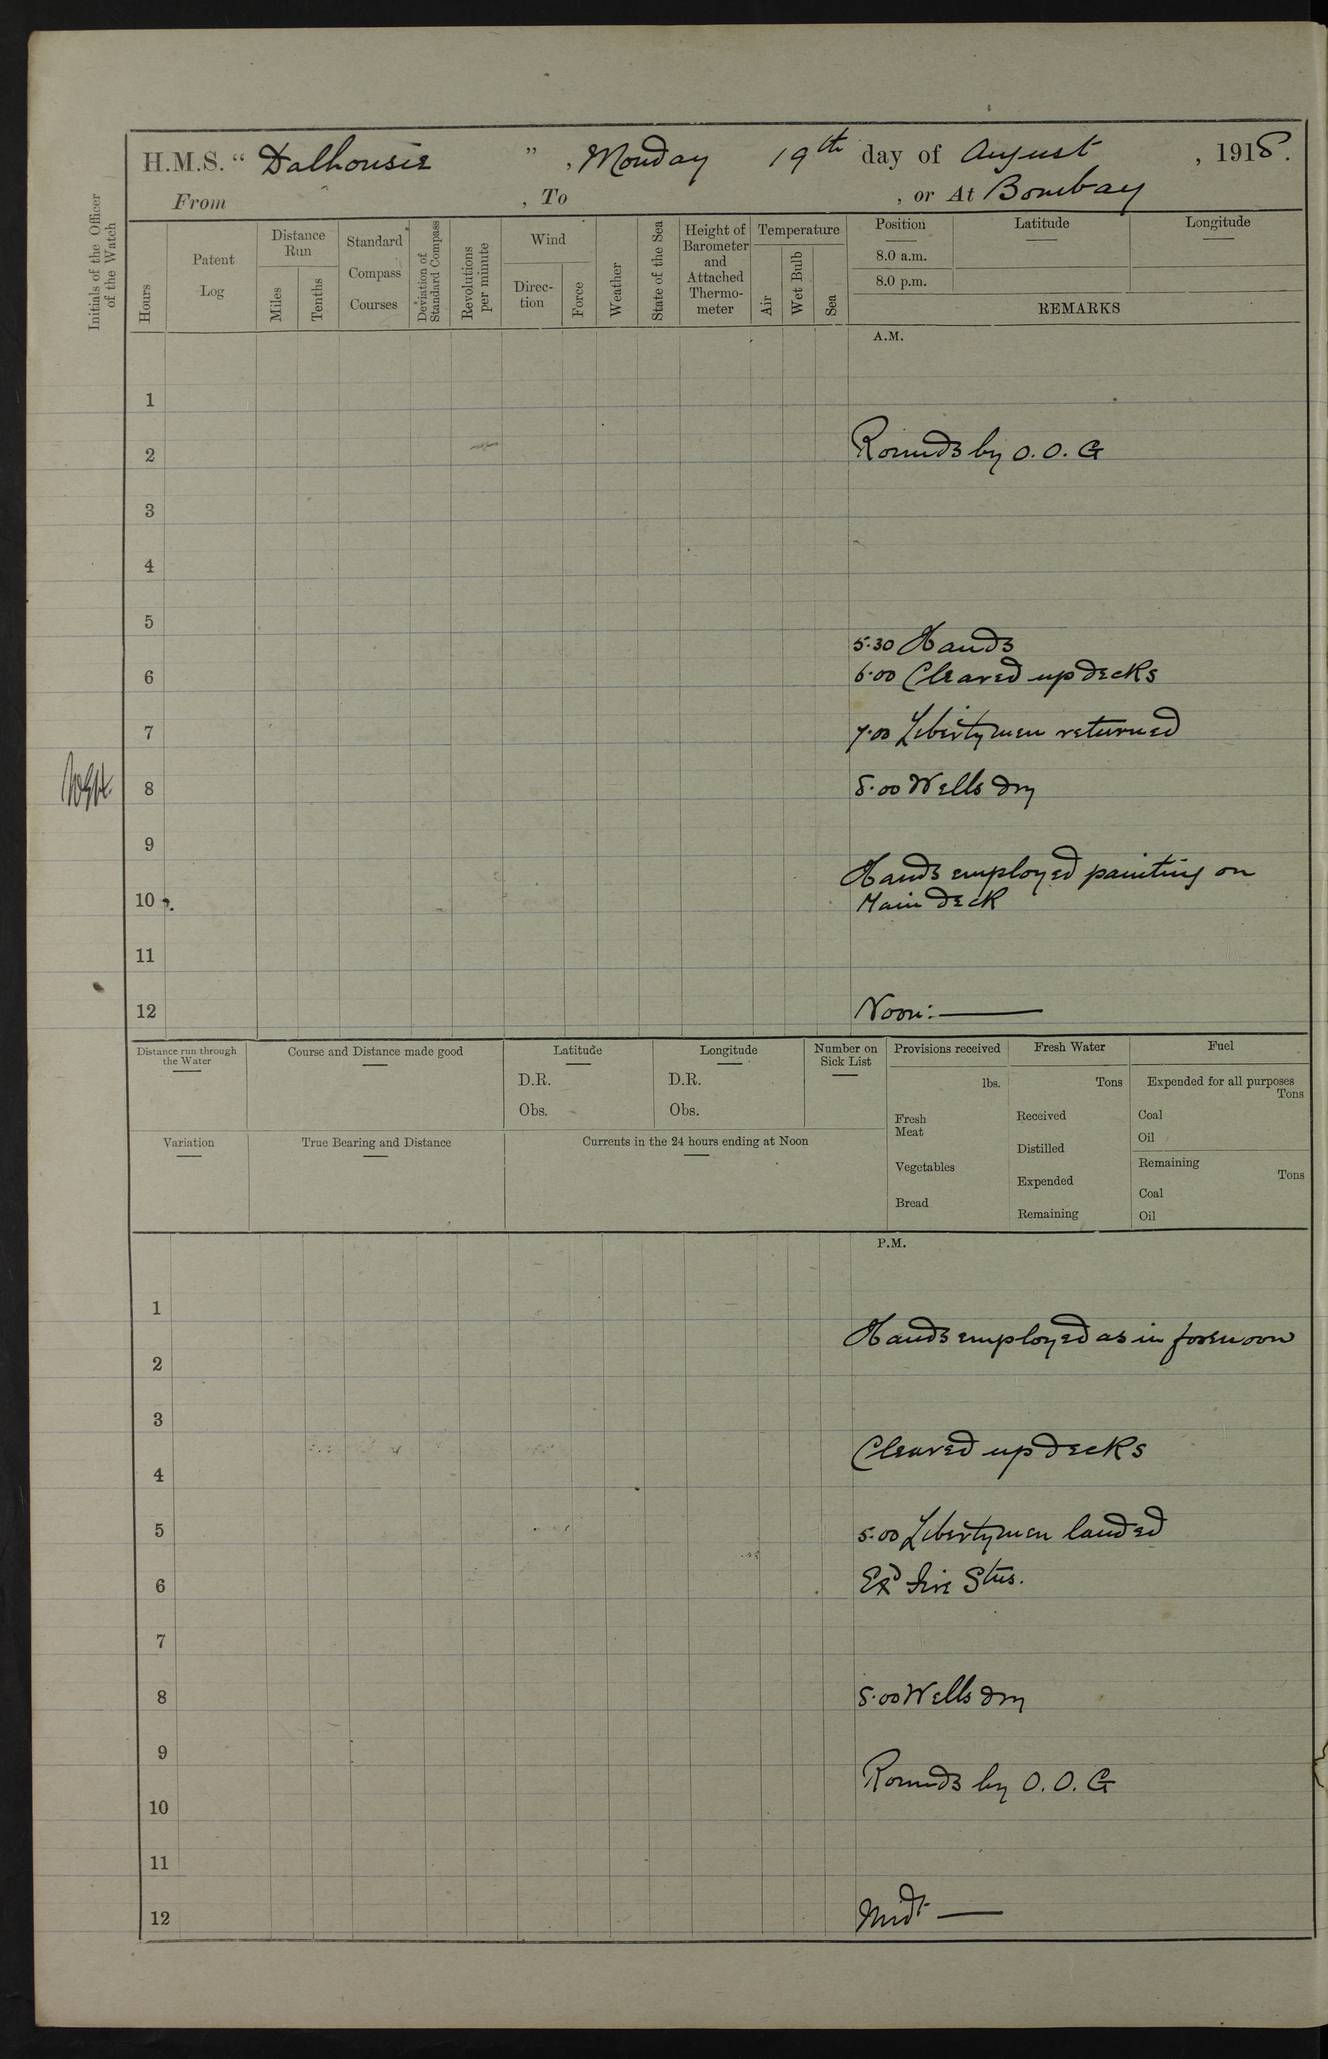 H.M.S. “ Dalhousie ” , Monday 19th day of August , 1918.
From , To , or At Bombay
Initials of the Officer of the Watch
Hours
Patent Log
Distance Run
Miles
Tenths
Standard Compass Courses
Deviation of Standard Compass
Revolutions per minute
Wind
Direction
Force
Weather
State of the Sea
Height of Barometer and Attached Thermometer
Temperature
Air
Wet Bulb
Sea
Position Latitude Longitude
8.0 a.m.
8.0 p.m.
REMARKS
A.M.
1
2 Rounds by O.O.G
3
4
5
5.30 Hands
6 6.00 Cleared up decks
7 7.00 Libertymen returned
8 8.00 Wells dry
9
Hands employed painting on
10 Main deck
11
12 Noon:—
Distance run through the Water
Course and Distance made good
Latitude
D.R.
Obs.
Longitude
D.R.
Obs.
Number on Sick List
Provisions received
lbs.
Fresh Meat
Vegetables
Bread
Fresh Water
Tons
Received
Distilled
Expended
Remaining
Fuel
Expended for all purposes
Tons
Coal
Oil
Remaining
Tons
Coal
Oil
Variation
True Bearing and Distance
Currents in the 24 hours ending at Noon
P.M.
1
Hands employed as in forenoon
2
3
Cleared up decks
4
5 5.00 Libertymen landed
6 Exd Fire Stns.
7
8 8.00 Wells dry
9
Rounds by O.O.G
10
11
12 Midt —